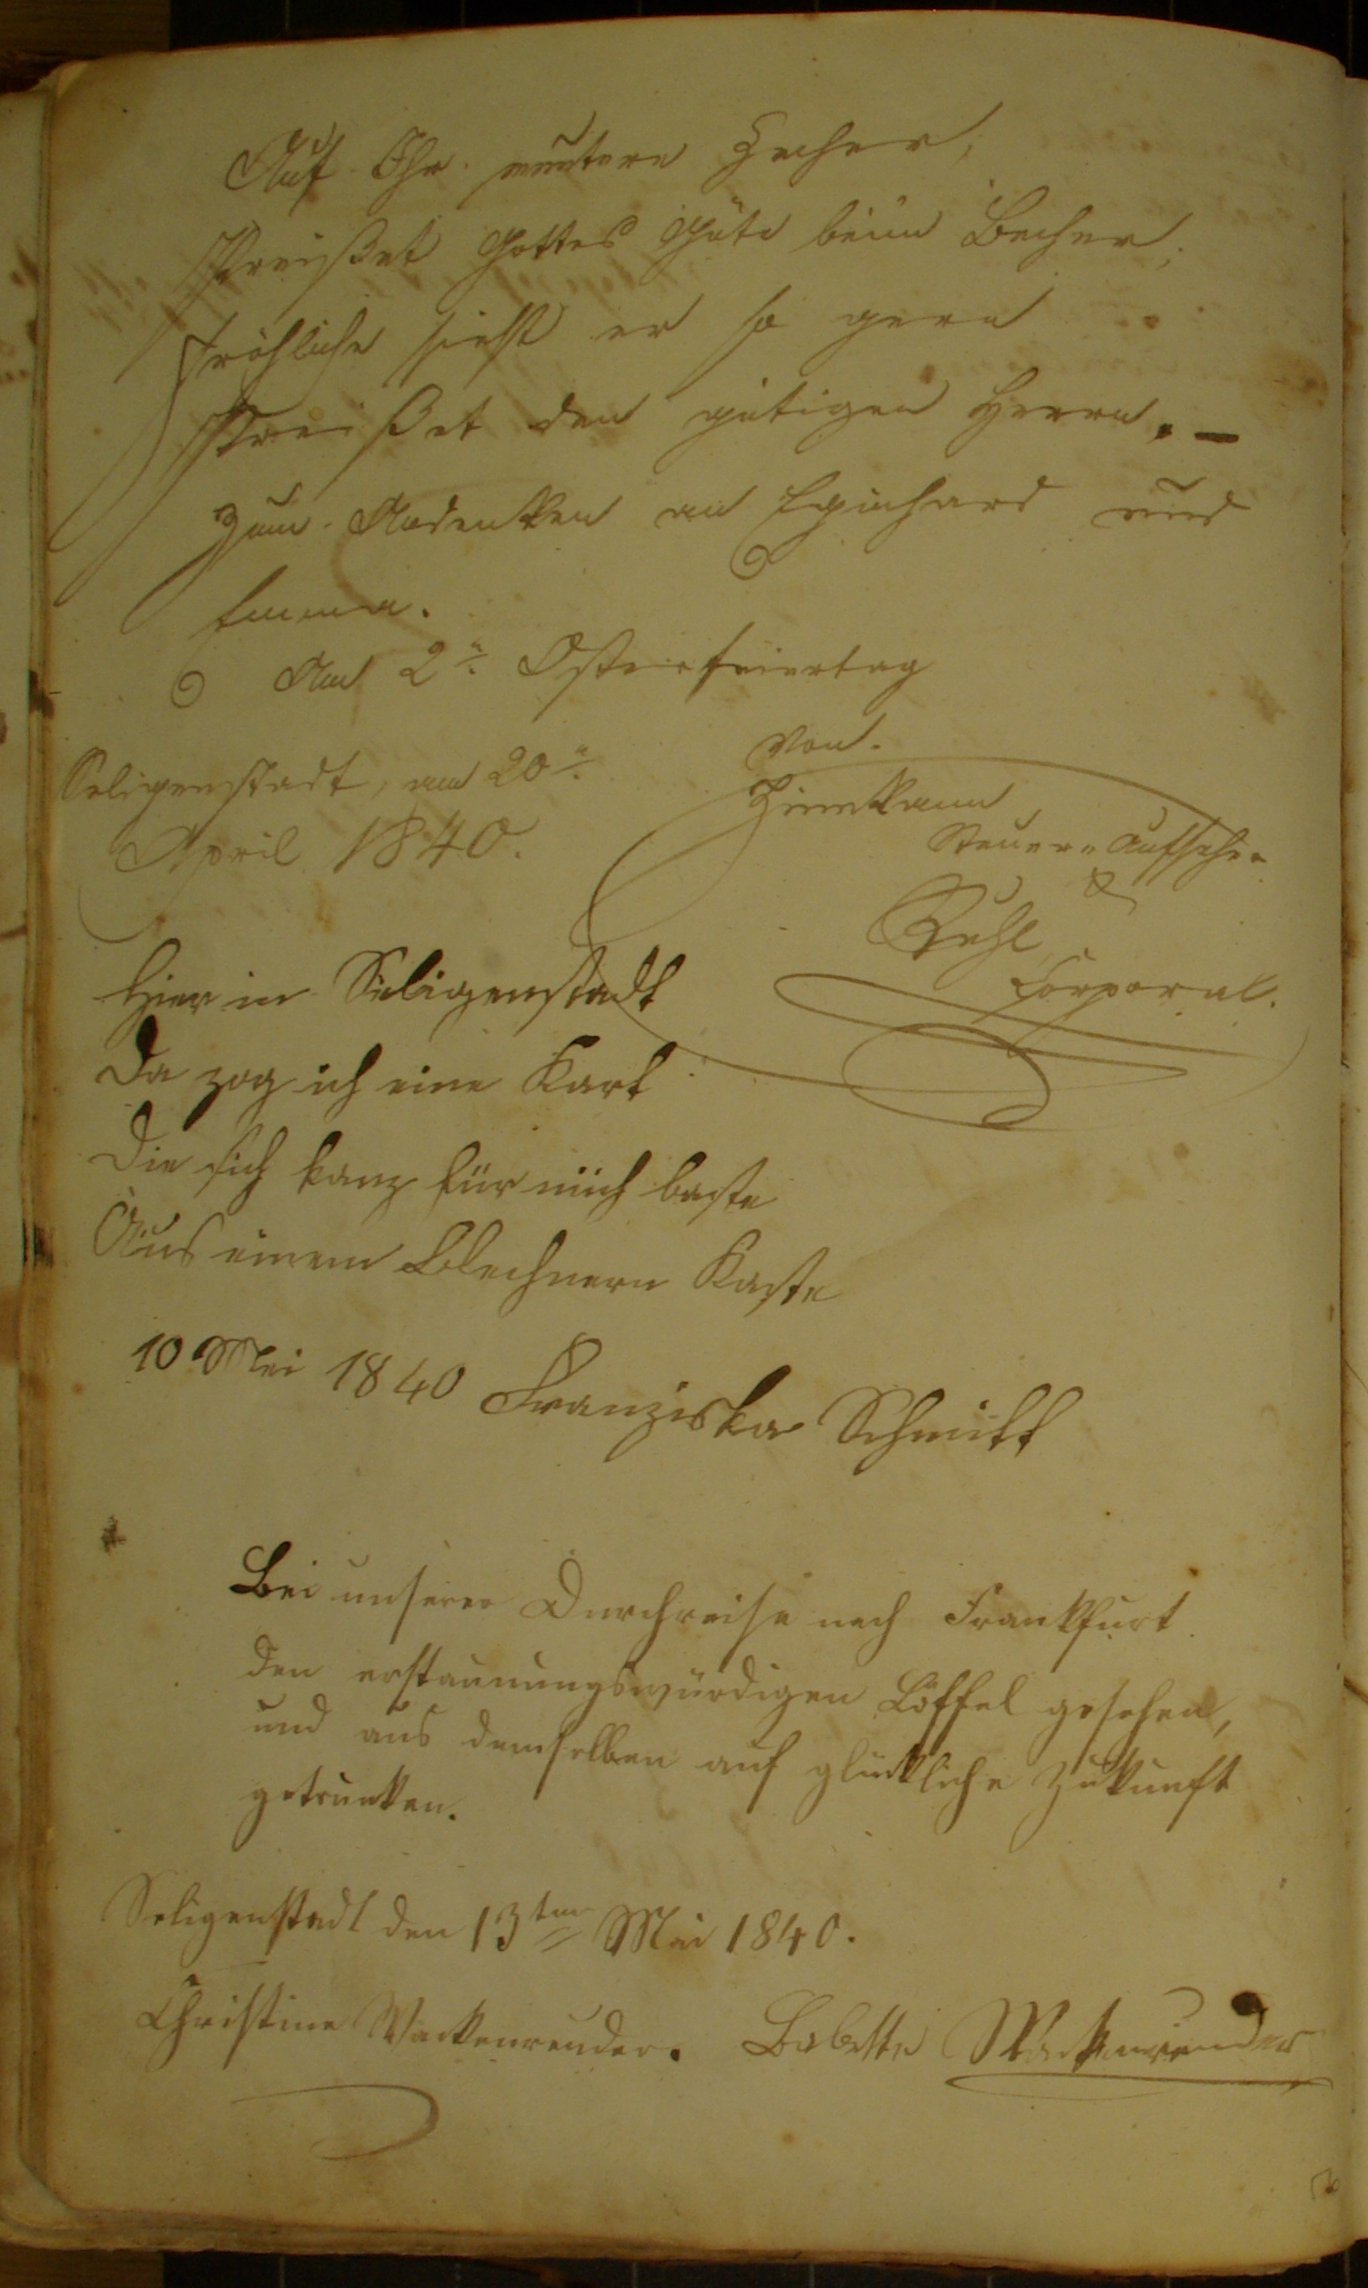 Auf Ihr muntere Zecher,
Preißet Gottes Güte beim Becher,
Fröhliche sieht er so gern
Preißet den gütigen Herrn. –
Zum Andenken an Eginhard und
Emma.
Am 2n. Osterfeiertag
Seligenstadt, am 20n.
April 1840.
von.
Steuer-Aufseher
&
Ruhl,
Corporal.
Hier in Seligenstadt
Da zog ich eine Kart
Die sich kanz für mich baste
Aus einem Blechnern Kaste
10 Mei 1840 Franziska Schmitt
Bei unserer Durchreise nach Frankfurt
den erstaunungswürdigen Löffel gesehen,
und aus demselben auf glückliche Zukunft
getrunken.
Seligenstadt den 13ten Mai 1840.
Christine Wackenreuder. Babette Wackenreuder